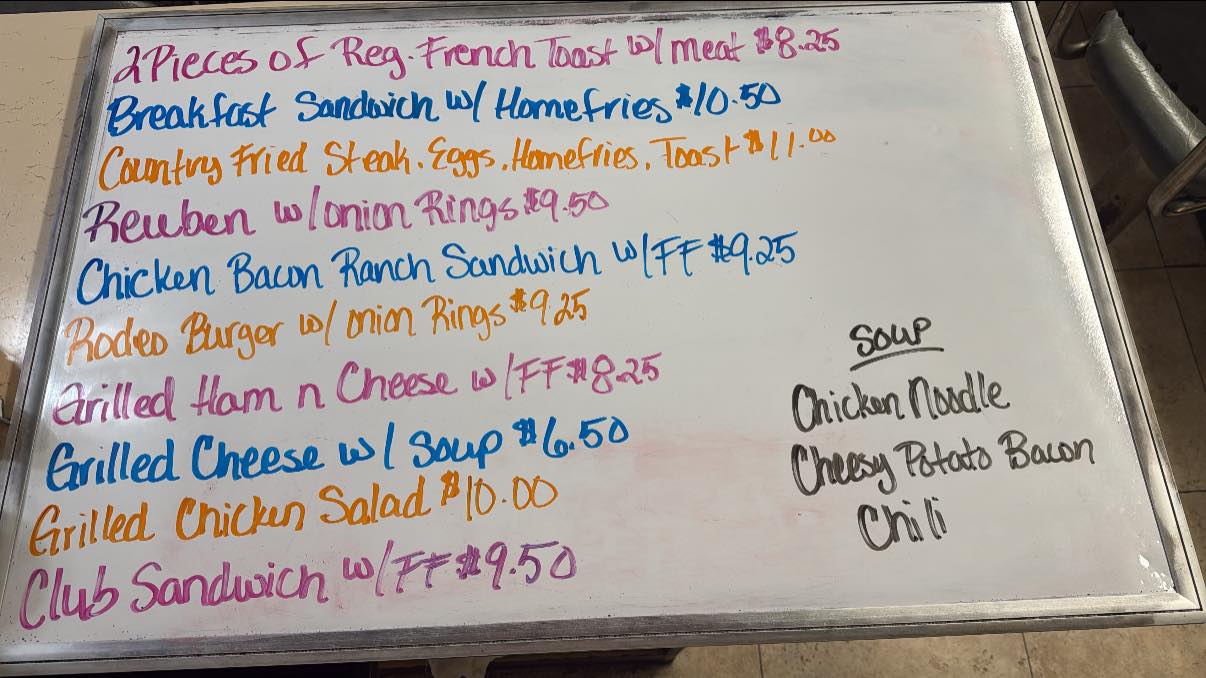 2 Pieces of Reg. French Toast w/ meat $8.25
Breakfast Sandwich w/ Homefries $10.50
Country Fried Steak. Eggs. Homefries. Toast $11.00
Reuben w/ onion Rings $9.50
Chicken Bacon Ranch Sandwich w/ FF $9.25
Rodeo Burger w/ onion Rings $9.25
Grilled Ham n Cheese w/ FF $8.25
Grilled Cheese w/ Soup $6.50
Grilled Chicken Salad $10.00
Club Sandwich w/ FF $9.50
Soup
Chicken Noodle
Cheesy Potato Bacon
Chili